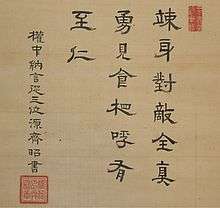 竦身對敵全眞
勇見食相呼有
至仁
權中納言從三位源齊昭書